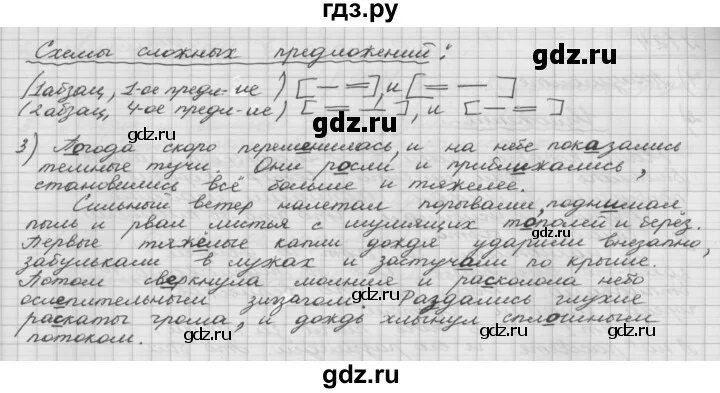 гдз.ру
Схемы сложных предложений:
(1абзац, 1-ое предл-ие) [— =], и [= —]
(2абзац, 4-ое предл-ие) [= —], и [— =]
3) Погода скоро переменилась, и на небе показались
темные тучи. Они росли и приближались,
становились всё больше и тяжелее.
Сильный ветер налетал порывами, поднимал
пыль и рвал листья с шумящих тополей и берёз.
Первые тяжёлые капли дождя ударили внезапно,
забулькали в лужах и застучали по крыше.
Потом сверкнула молния и расколола небо
ослепительным зигзагом. Раздались глухие
раскаты грома, и дождь хлынул сплошным
потоком.
gdz.ru
gdz.ru
gdz.ru
gdz.ru
gdz.ru
gdz.ru
gdz.ru
gdz.ru
gdz.ru